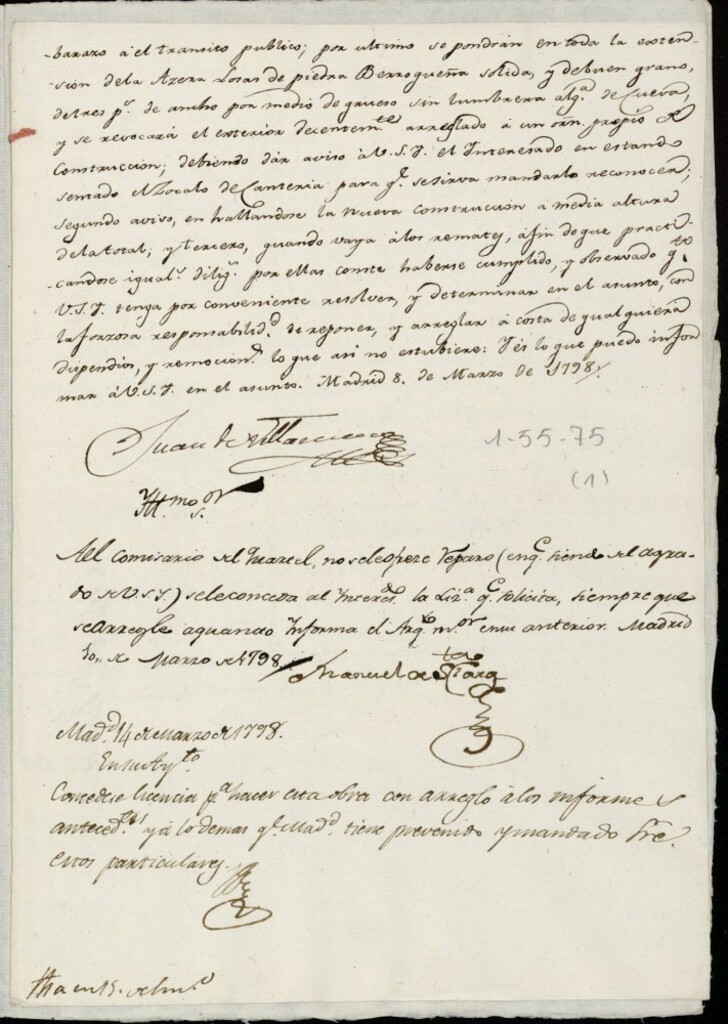 barazo à el transito publico; por ultimo se pondrán en toda la exten-
sión dela Azera Losas de piedra Berroqueña solida, y debuen grano,
detres p.s de ancho por medio de grueso sin lumbrera alg.a de Cueva,
y se revocará el exterior decentem.te arreglado à un orn. propio
Construccion; debiendo dàr aviso àV.S.Y. el Interesado en estando
sentado el Zocalo de Canteria para q.e sesirva mandarlo reconocer;
segundo aviso, en hallandose la nueva construccion a media altura
delatotal; y tercero, quando vaya àlos remates, àfin deque practi-
candose igual.s dilig.s por ellas conste haberse cumplido, y observado q.to
V.S.Y. tenga por conveniente resolver, y determinar en el asunto, con
la forzosa responsabilid.d de reponer, y arreglar à costa de qualquiera
dispendios, y remocion.s lo que asi no estubiere: Y és lo que puedo infor
mar àV.S.Y. en el asunto. Madrid 8. de Marzo de 1798
Juan de Villanueva
1-55-75
(1)
Yll.mo S.or
Al Comisario del Quartel, no sele ofreze Reparo (enq.e siendo del agra-
do deV.S.Y.) seleconceda al Interes.do la Liz.a q.e solicita, siempre que
se arregle aquanto Informa el Arq.to m.or ensu anterior. Madrid
10,, de Marzo de 1798
Manuel de S.ta Clara
Mad.d 14 de Marzo de 1798.
En su Ay.to
Concedese licencia p.a hacer esta obra con arreglo à los informes
anteced.tes y à lo demas q.e Mad.d tiene prevenido y mandado sre.
estos particulares.
fha en 15. de